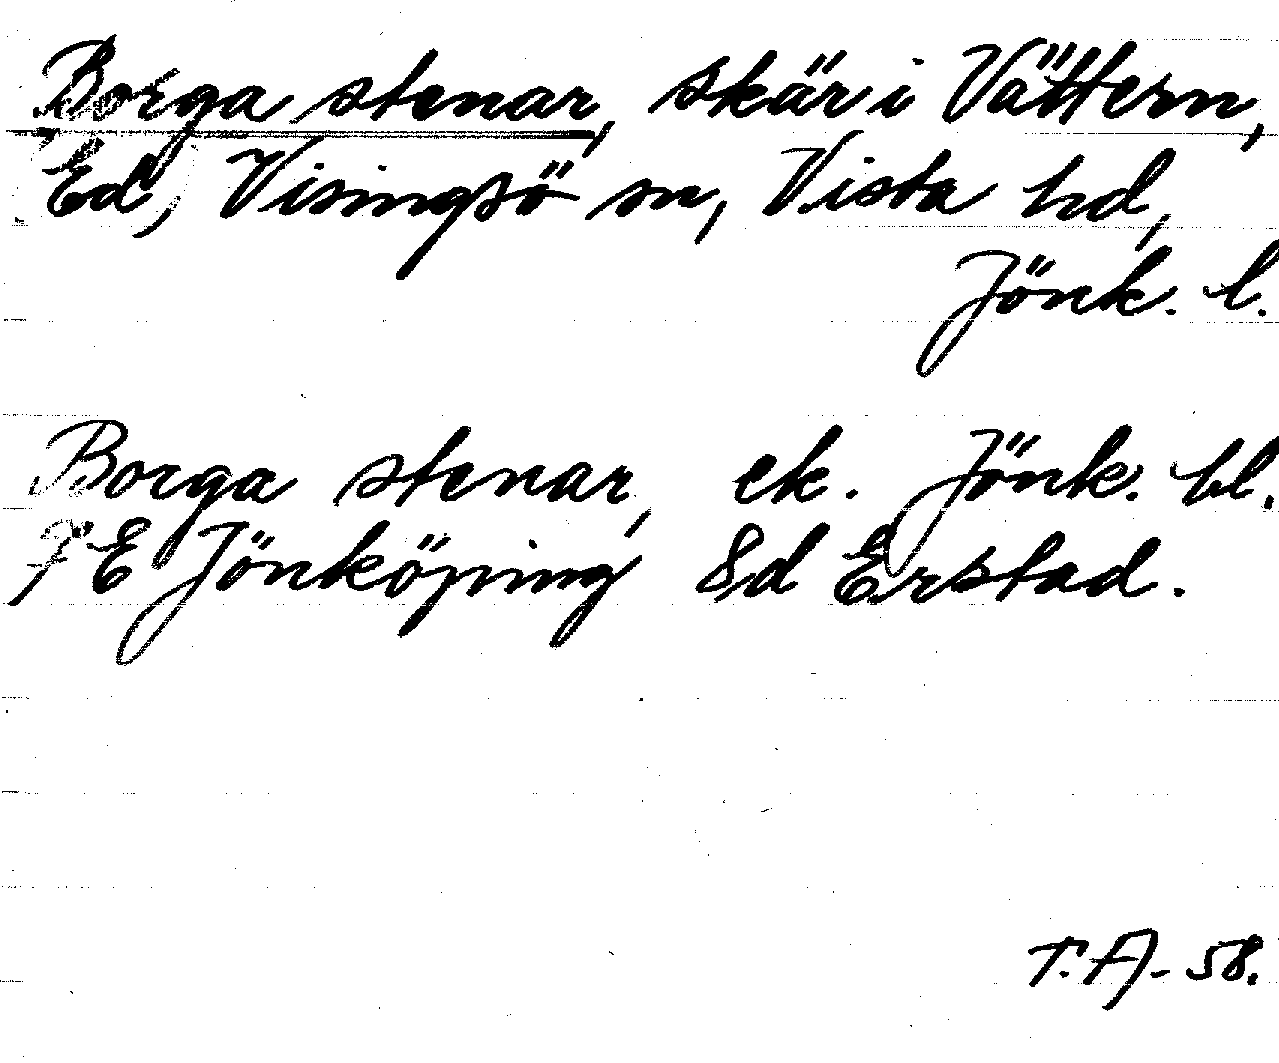 Borga stenar, skär i Vättern,
Ed, Visingsö sn, Vista hd,
Jönk. l.
Borga stenar, ek. Jönk. bl.
7 E Jönköping 8d Erstad.
T.A-58.